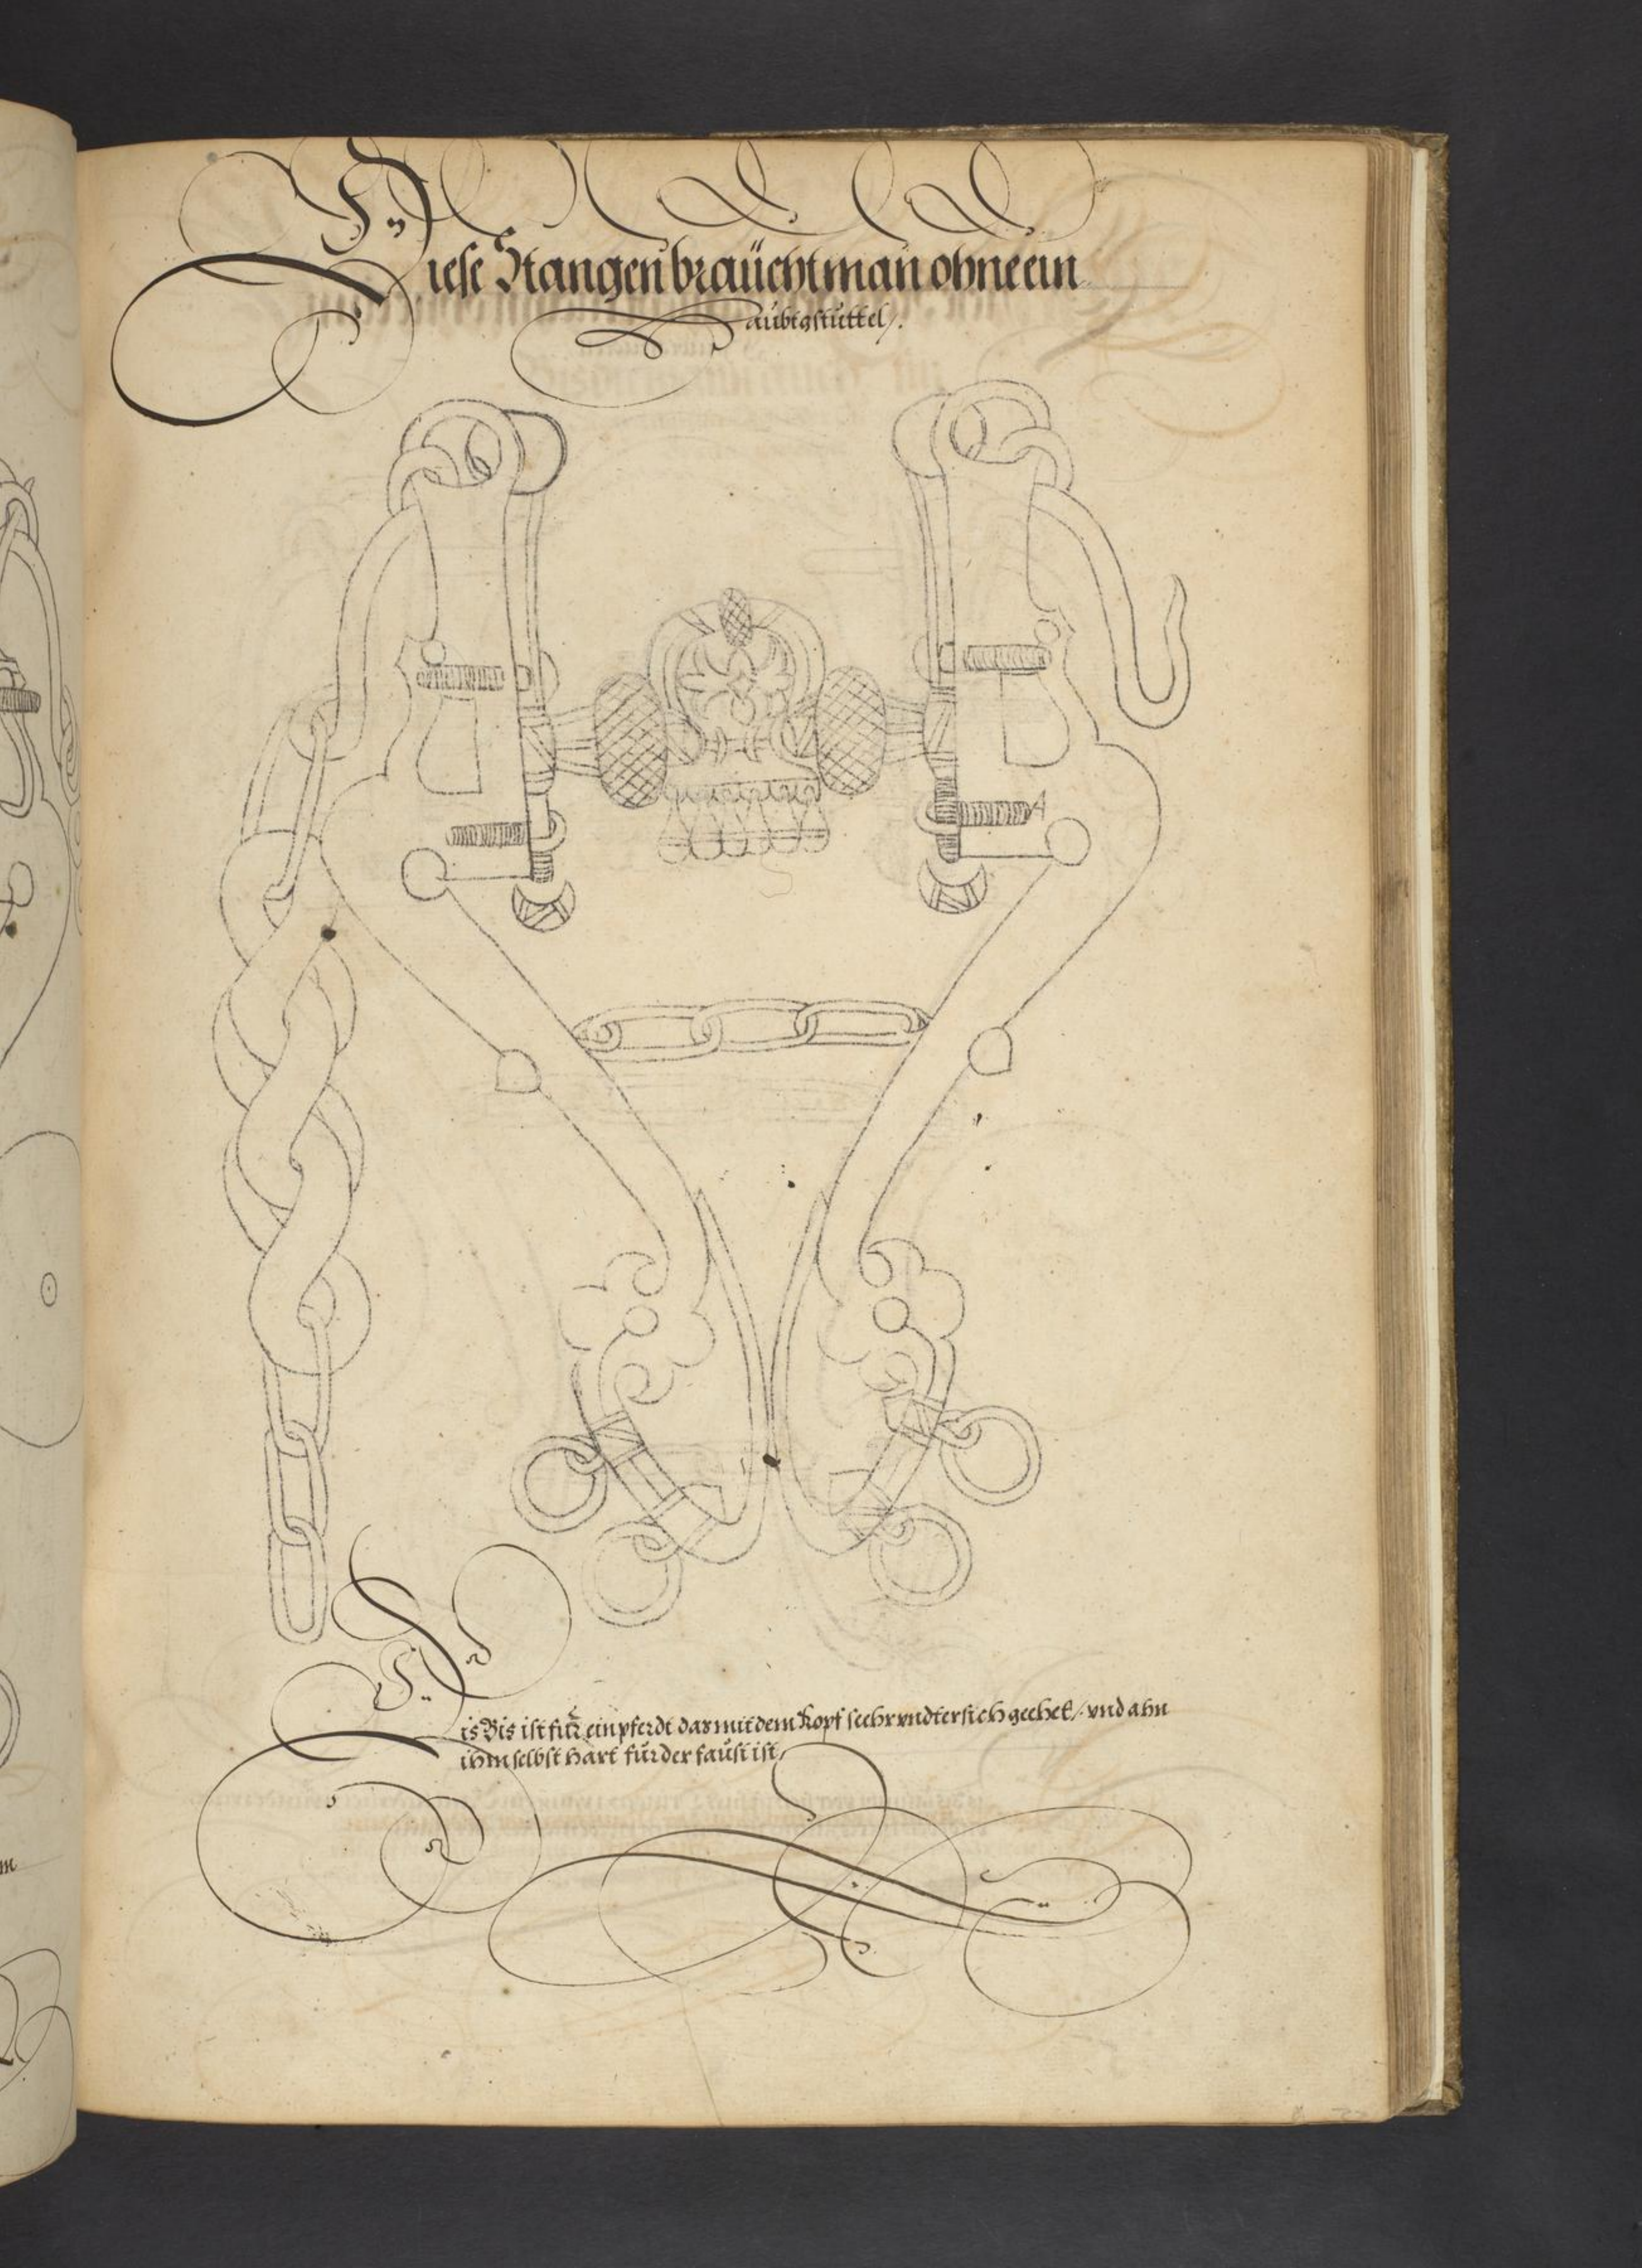 Diese Stangen braücht man ohne ein
Haubtgstuttel /.
4
Dis Bis ist für ein pferdt das mit dem Kopf seehr vndtersich geehet / vnd ahn
ihm selbst hart für der faust ist
m